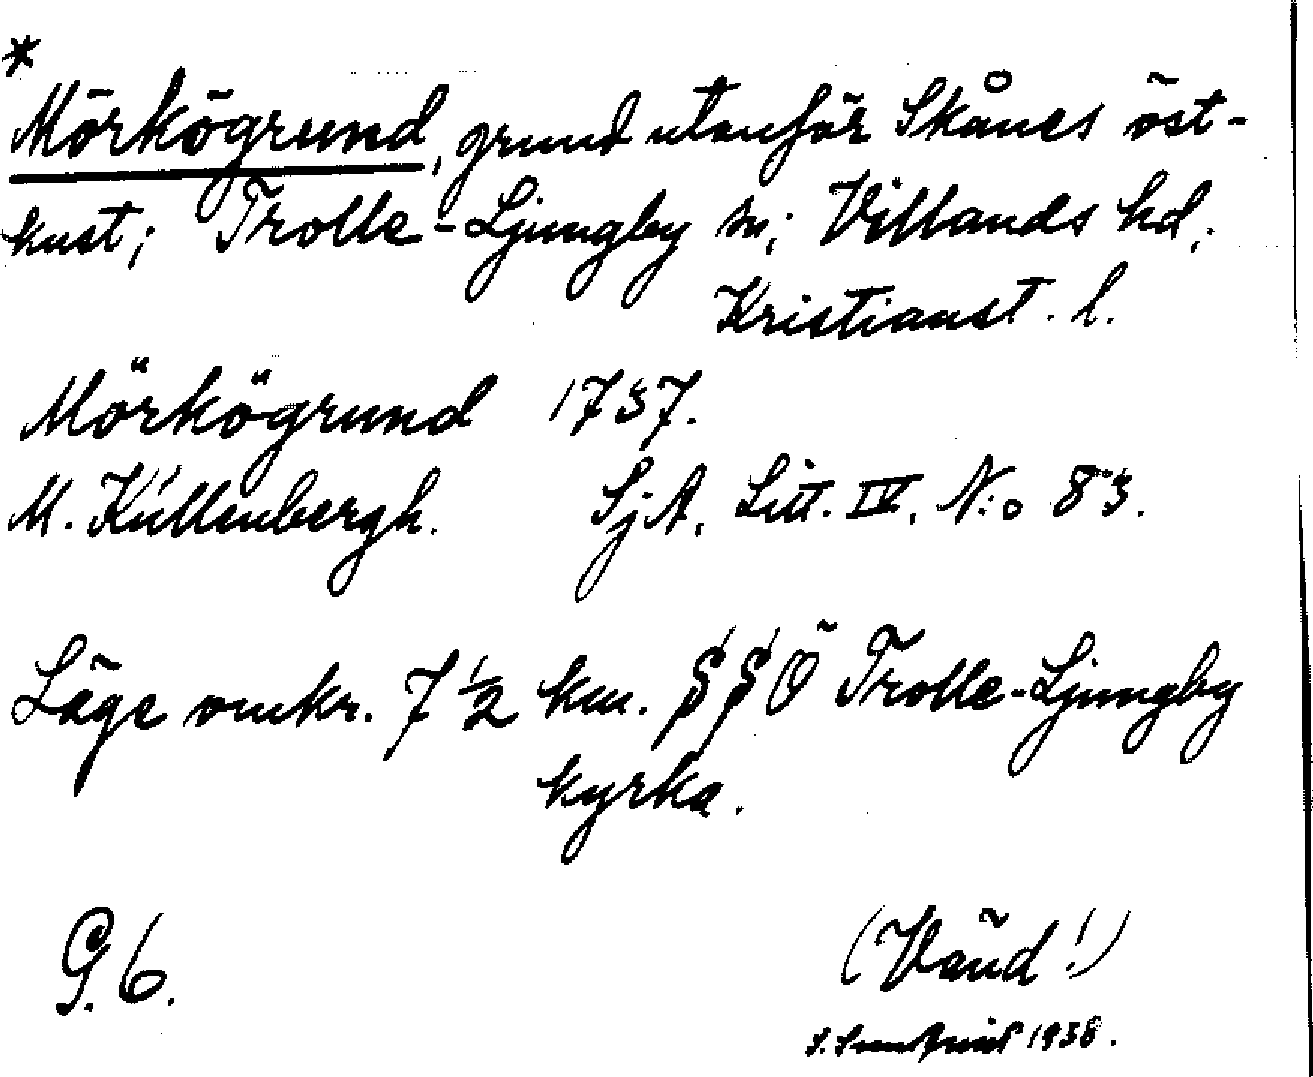 *
Mörkögrund, grund utanför Skånes öst-
kust; Trolle-Ljungby sn; Villands hd;
Kristianst. l.
Mörkögrund 1737.
M. Küllenbergh. SjA, Litt. IV, N:o 83.
Läge omkr. 7 1/2 km. SSÖ Trolle-Ljungby
kyrka.
G. 6.
(Vänd!)
S. 1938.